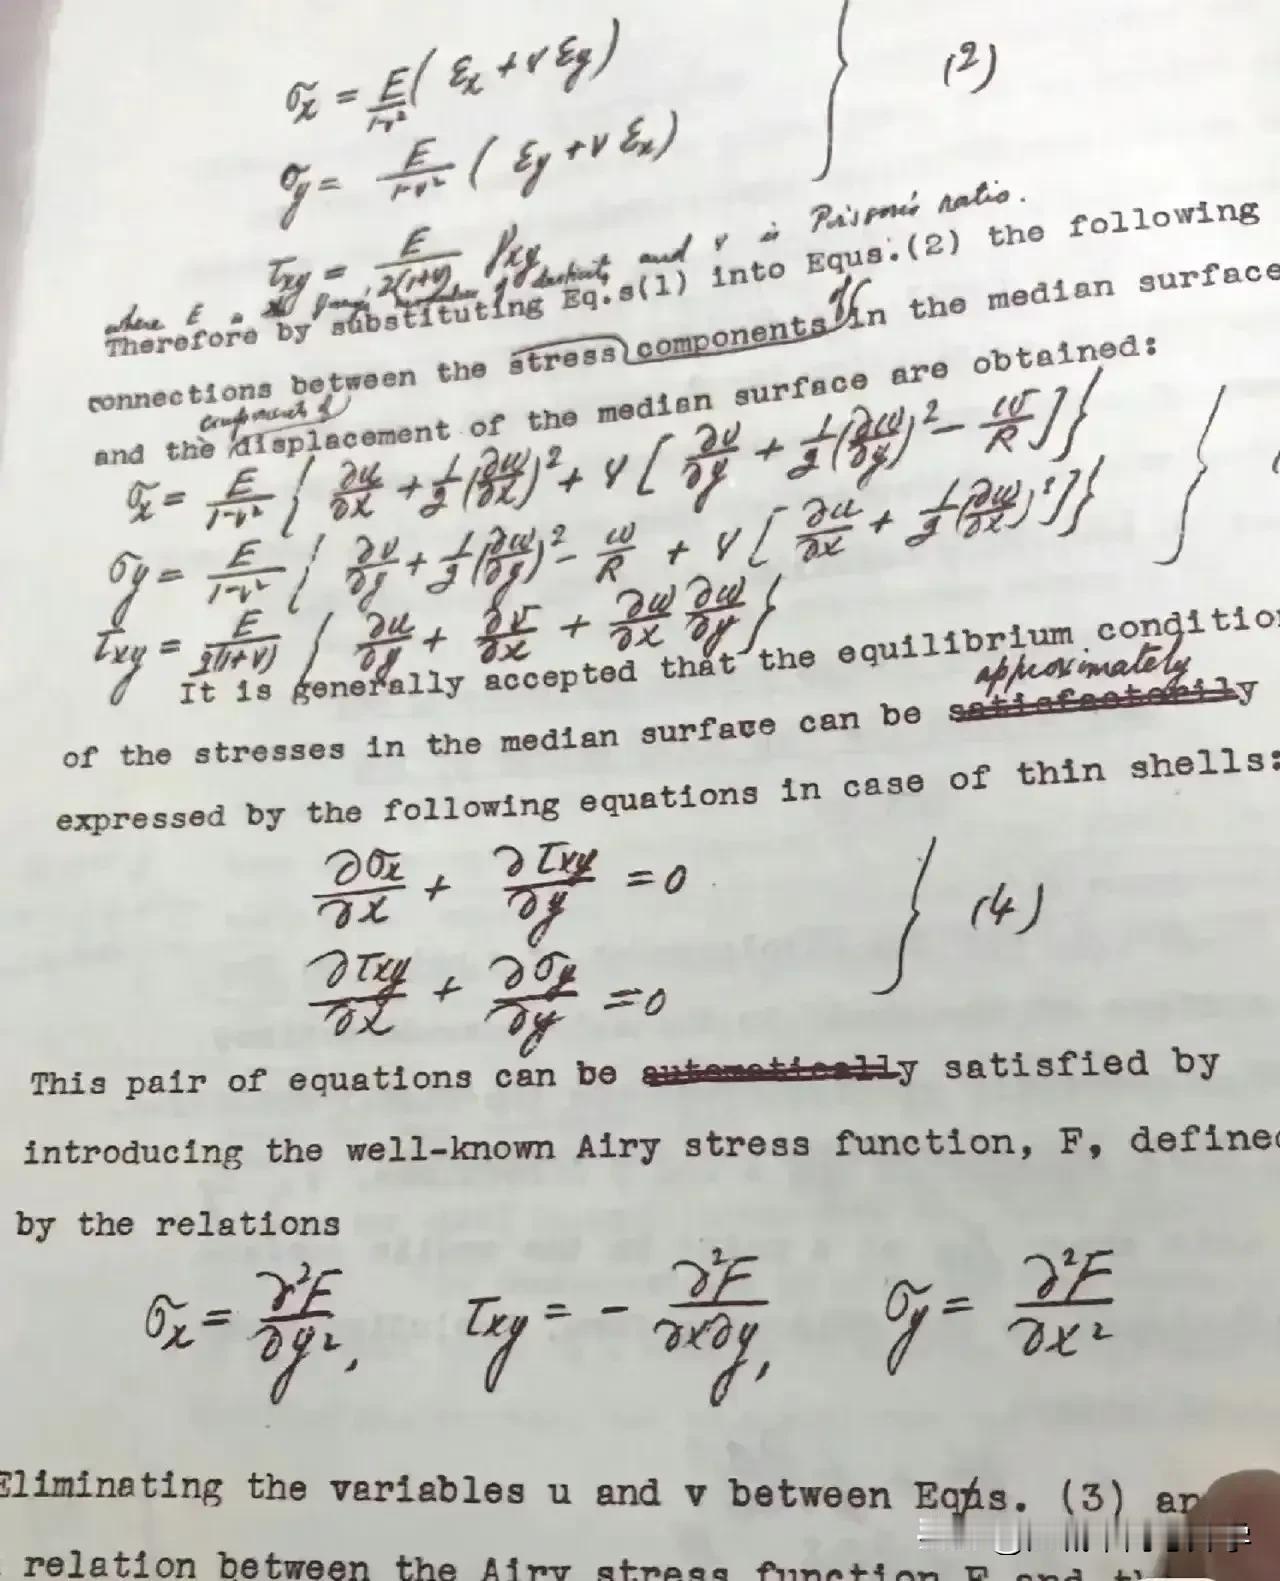 σx = E/1-ν² ( εx + ν εy )
(2)
σy = E/1-ν² ( εy + ν εx )
τxy = E/2(1+ν) γxy
where E is and ν is Poisson's ratio.
Therefore by substituting Eq.s(1) into Equs.(2) the following
connections between the stress components of in the median surface
components of
and the displacement of the median surface are obtained:
σx = E/1-ν² { ∂u/∂x + 1/2 (∂w/∂x)² + ν [ ∂v/∂y + 1/2 (∂w/∂y)² - w/R ] }
σy = E/1-ν² { ∂v/∂y + 1/2 (∂w/∂y)² - w/R + ν [ ∂u/∂x + 1/2 (∂w/∂x)² ] }
τxy = E/2(1+ν) { ∂u/∂y + ∂v/∂x + ∂w/∂x ∂w/∂y }
It is generally accepted that the equilibrium condition
approximately
of the stresses in the median surface can be satisfactorily
expressed by the following equations in case of thin shells:
∂σx/∂x + ∂τxy/∂y = 0
(4)
∂τxy/∂x + ∂σy/∂y = 0
This pair of equations can be automatically satisfied by
introducing the well-known Airy stress function, F, defined
by the relations
σx = ∂²F/∂y², τxy = - ∂²F/∂x∂y, σy = ∂²F/∂x²
Eliminating the variables u and v between Eqns. (3)
relation between the Airy stress function F and